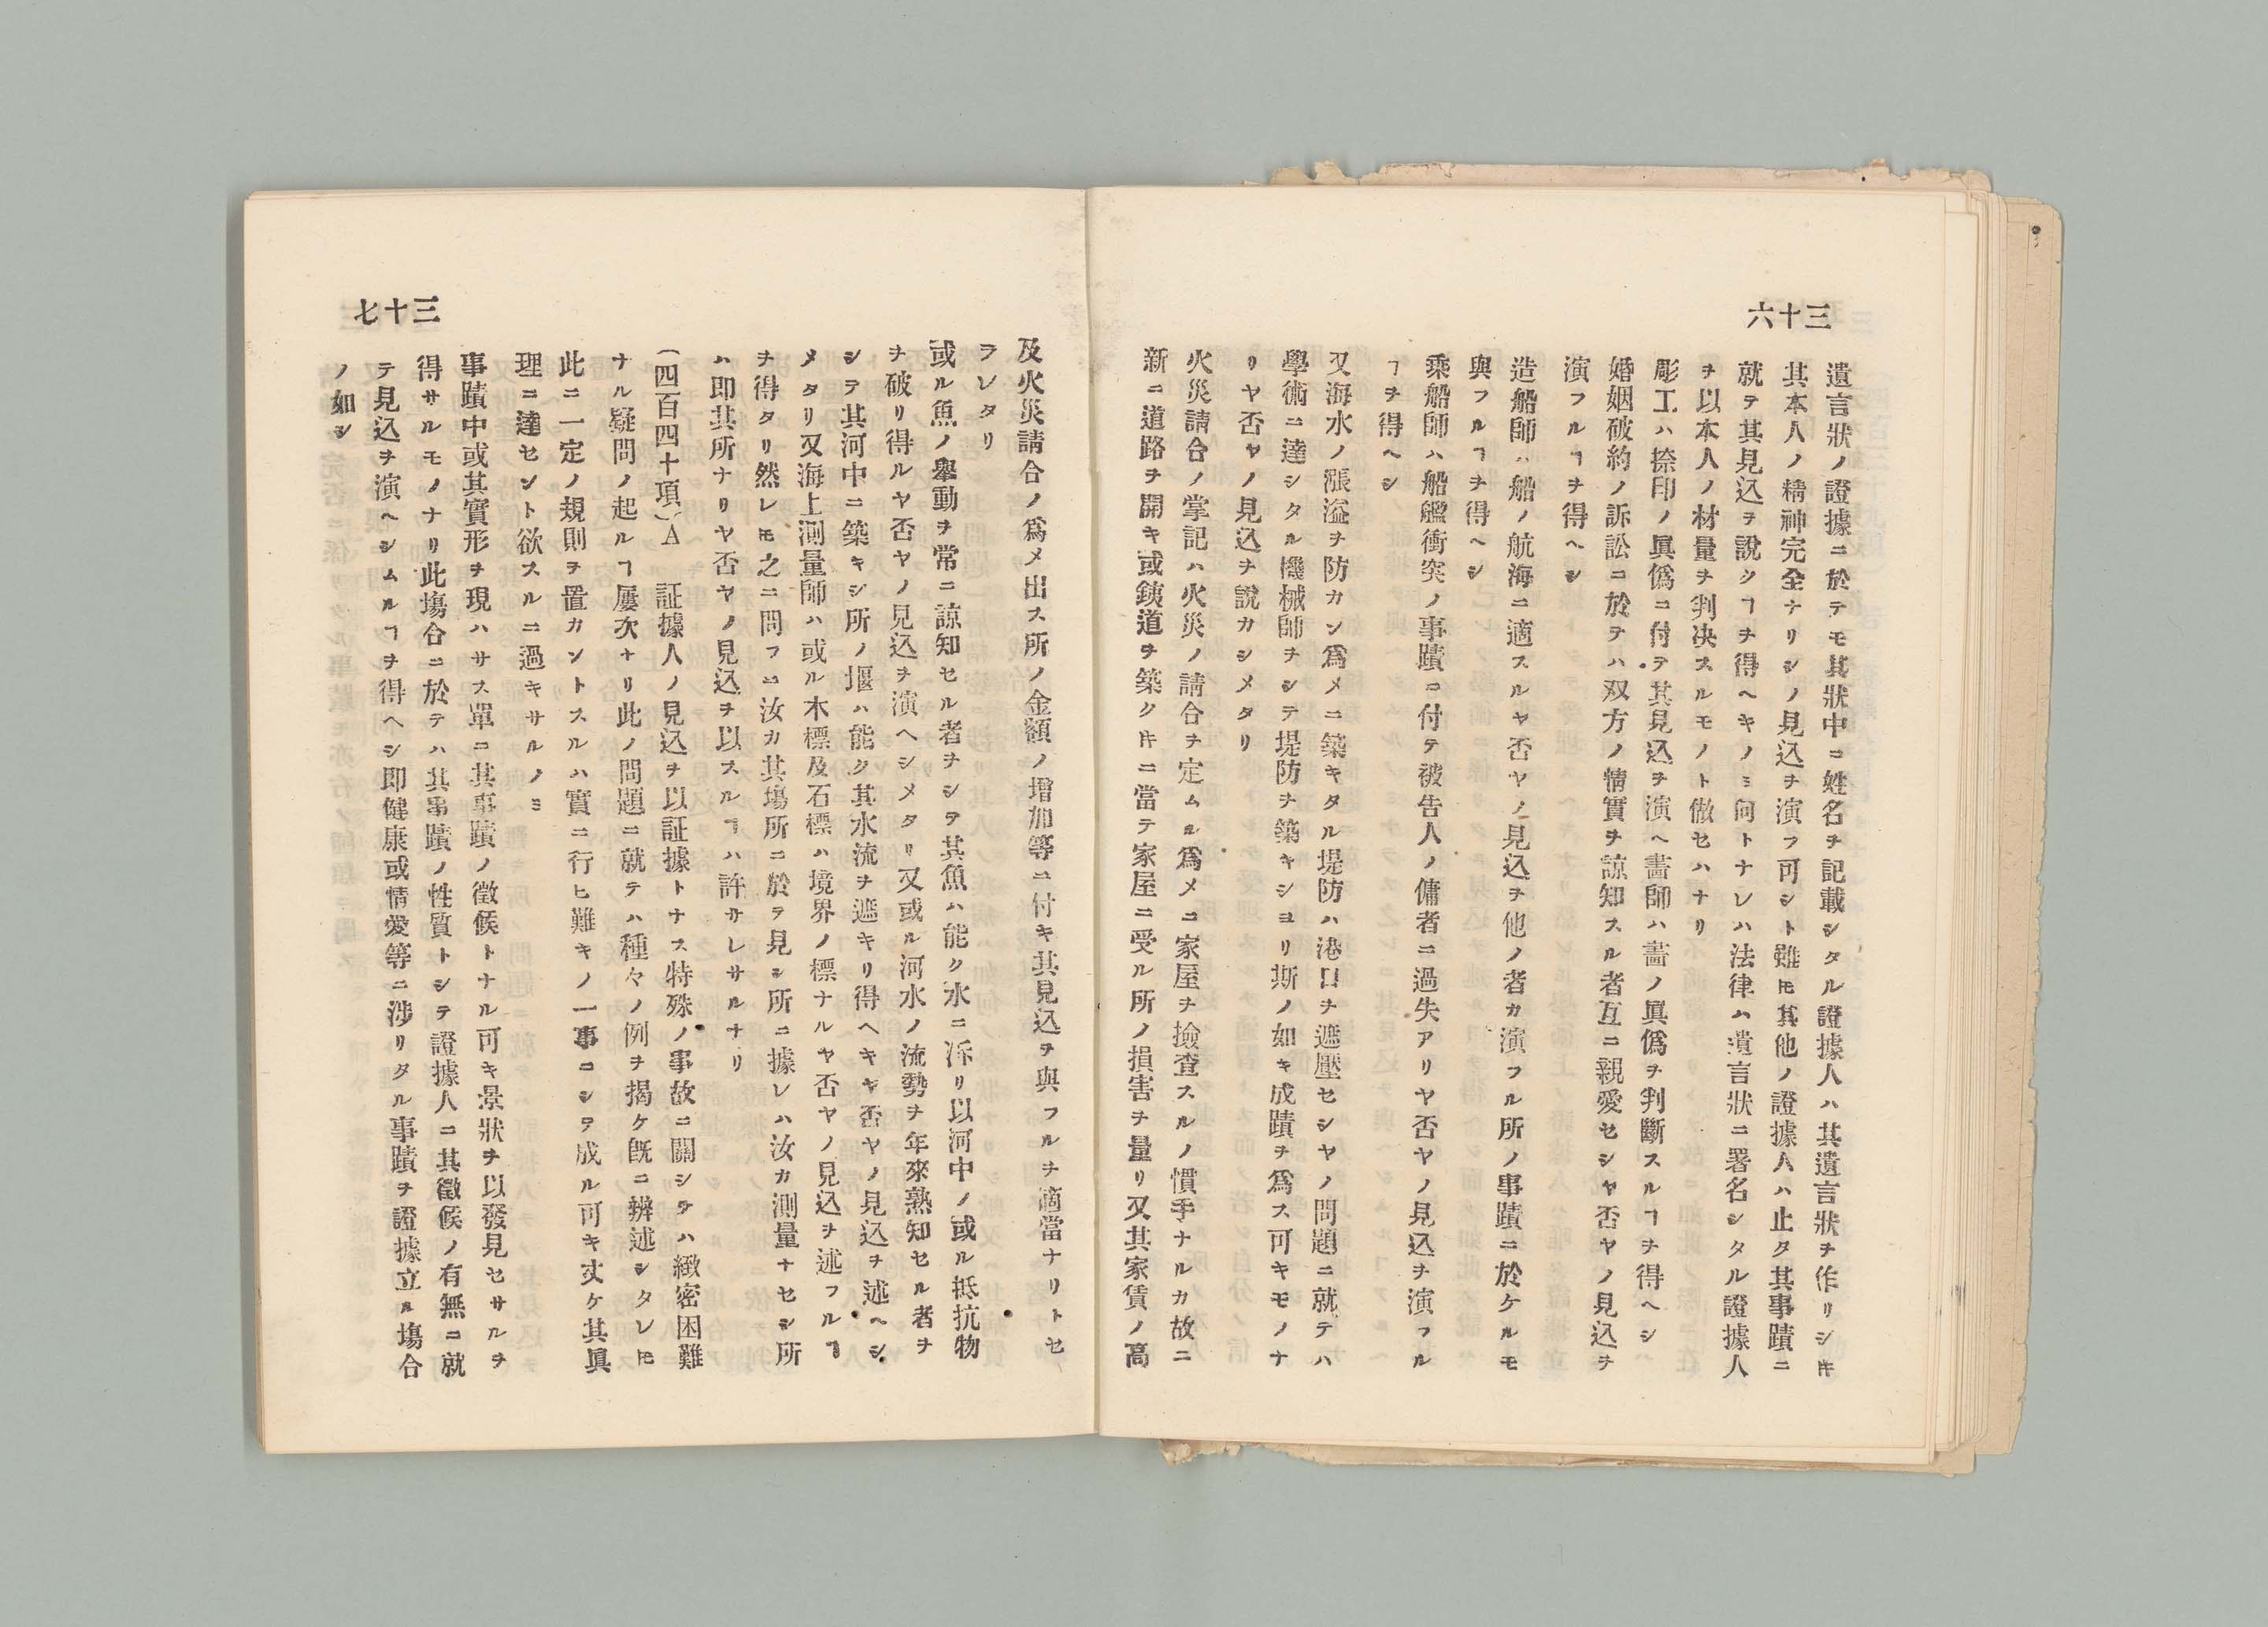 三十六
遺言狀ノ證據ニ於テモ其狀中ニ姓名ヲ記載シタル證據人ハ其遺言狀ヲ作リシ𪜈
其本人ノ精神完全ナリシノ見込ヲ演フ可シト雖𪜈其他ノ證據人ハ止タ其事蹟ニ
就テ其見込ヲ說クヿヲ得ヘキノミ何トナレハ法律ハ遺言狀ニ署名シタル證據人
ヲ以本人ノ材量ヲ判决スルモノト倣セハナリ
彫工ハ捺印ノ眞僞ニ付テ其見込ヲ演ヘ畵師ハ畵ノ眞僞ヲ判斷スルヿヲ得ヘシ
婚姻破約ノ訴訟ニ於テハ双方ノ情實ヲ諒知スル者互ニ親愛セシヤ否ヤノ見込ヲ
演フルヿヲ得ヘシ
造船師ハ船ノ航海ニ適スルヤ否ヤノ見込ヲ他ノ者カ演フル所ノ事蹟ニ於ケルモ
與フルヿヲ得ヘシ
乘船師ハ船艦衝突ノ事蹟ニ付テ被告人ノ傭者ニ過失アリヤ否ヤノ見込ヲ演フル
ヿヲ得ヘシ
又海水ノ漲溢ヲ防カン爲メニ築キタル堤防ハ港口ヲ遮壓セシヤノ問題ニ就テハ
學術ニ達シタル機械師ヲシテ堤防ヲ築キシヨリ斯ノ如キ成蹟ヲ爲ス可キモノナ
リヤ否ヤノ見込ヲ說カシメタリ
火災請合ノ掌記ハ火災ノ請合ヲ定ムル爲メニ家屋ヲ撿査スルノ慣手ナルカ故ニ
新ニ道路ヲ開キ或銕道ヲ築ク𪜈ニ當テ家屋ニ受ル所ノ損害ヲ量リ又其家賃ノ高
三十七
及火災請合ノ爲メ出ス所ノ金額ノ增加等ニ付キ其見込ヲ與フルヲ適當ナリトセ
ラレタリ
或ル魚ノ擧動ヲ常ニ諒知セル者ヲシテ其魚ハ能ク水ニ泝リ以河中ノ或ル抵抗物
ヲ破リ得ルヤ否ヤノ見込ヲ演ヘシメタリ又或ル河水ノ流勢ヲ年來熟知セル者ヲ
シテ其河中ニ築キシ所ノ堰ハ能ク其水流ヲ遮キリ得ヘキヤ否ヤノ見込ヲ述ヘシ
メタリ又海上測量師ハ或ル木標及石標ハ境界ノ標ナルヤ否ヤノ見込ヲ述フルヿ
ヲ得タリ然レ𪜈之ニ問フニ汝カ其塲所ニ於テ見シ所ニ據レハ汝カ測量ナセシ所
ハ即其所ナリヤ否ヤノ見込ヲ以スルヿハ許サレサルナリ
（四百四十項）A 証據人ノ見込ヲ以証據トナス特殊ノ事故ニ關シテハ緻密困難
ナル疑問ノ起ルヿ屢次ナリ此ノ問題ニ就テハ種々ノ例ヲ揭ケ既ニ辨述シタレ𪜈
此ニ一定ノ規則ヲ置カントスルハ實ニ行ヒ難キノ一事ニシテ成ル可キ丈ケ其眞
理ニ達セント欲スルニ過キサルノミ
事蹟中或其實形ヲ現ハサス單ニ其事蹟ノ徵候トナル可キ景狀ヲ以發見セサルヲ
得サルモノナリ此塲合ニ於テハ其事蹟ノ性質トシテ證據人ニ其徵候ノ有無ニ就
テ見込ヲ演ヘシムルヿヲ得ヘシ即健康或情愛等ニ涉リタル事蹟ヲ證據立ル塲合
ノ如シ